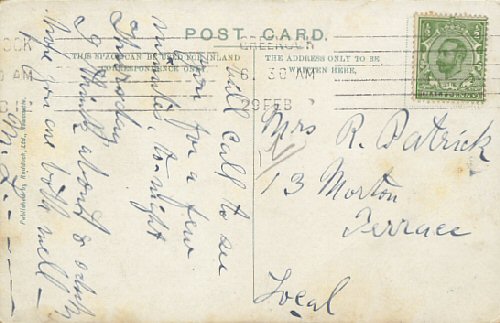 POST CARD.
THIS SPACE CAN BE USED FOR INLAND
CORRESPONDENCE ONLY
THE ADDRESS ONLY TO BE
WRITTEN HERE.
GREENOCK
6. 30 AM
29 FEB
OCK
AM
HALFPENNY
will call to see
you for a few
minutes, to-night
Thursday
I think about 8 o'clock
Hope you are both well -
Mrs R. Patrick
13 Morton
Terrace
Local